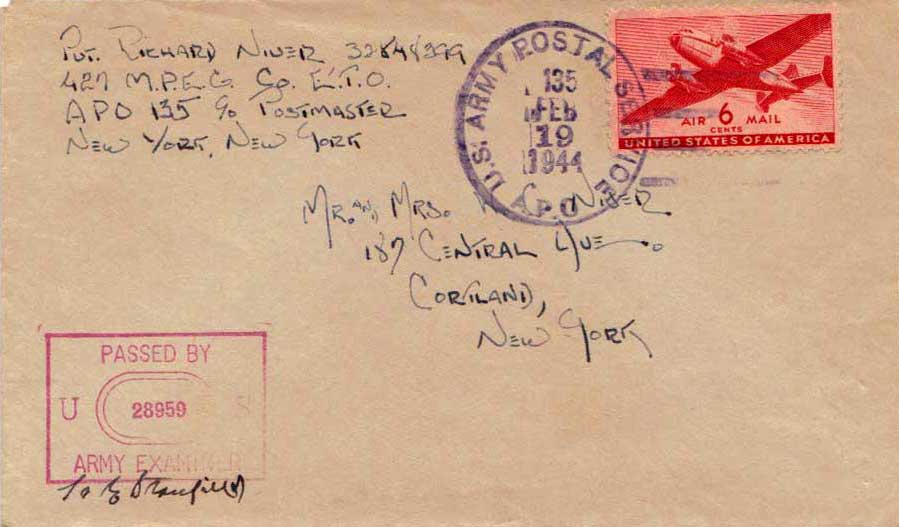 Pvt. Richard Niver 32844399
427 M.P.E.G. Co. E.T.O.
APO 135 c/o Postmaster
New York, New York
U.S. ARMY POSTAL SERVICE
135
FEB
19
1944
A.P.O.
AIR 6 MAIL
CENTS
UNITED STATES OF AMERICA
Mr. and Mrs. Niver
187 Central Ave.
Cortland,
New York
PASSED BY
U 28959 S
ARMY EXAMINER